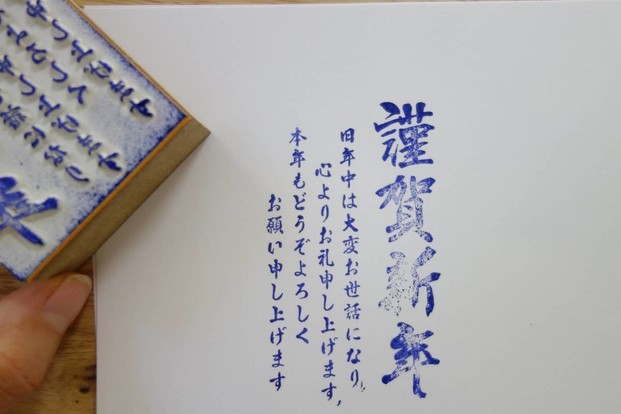 謹賀新年
旧年中は大変お世話になり、
心よりお礼申し上げます。
本年もどうぞよろしく
お願い申し上げます